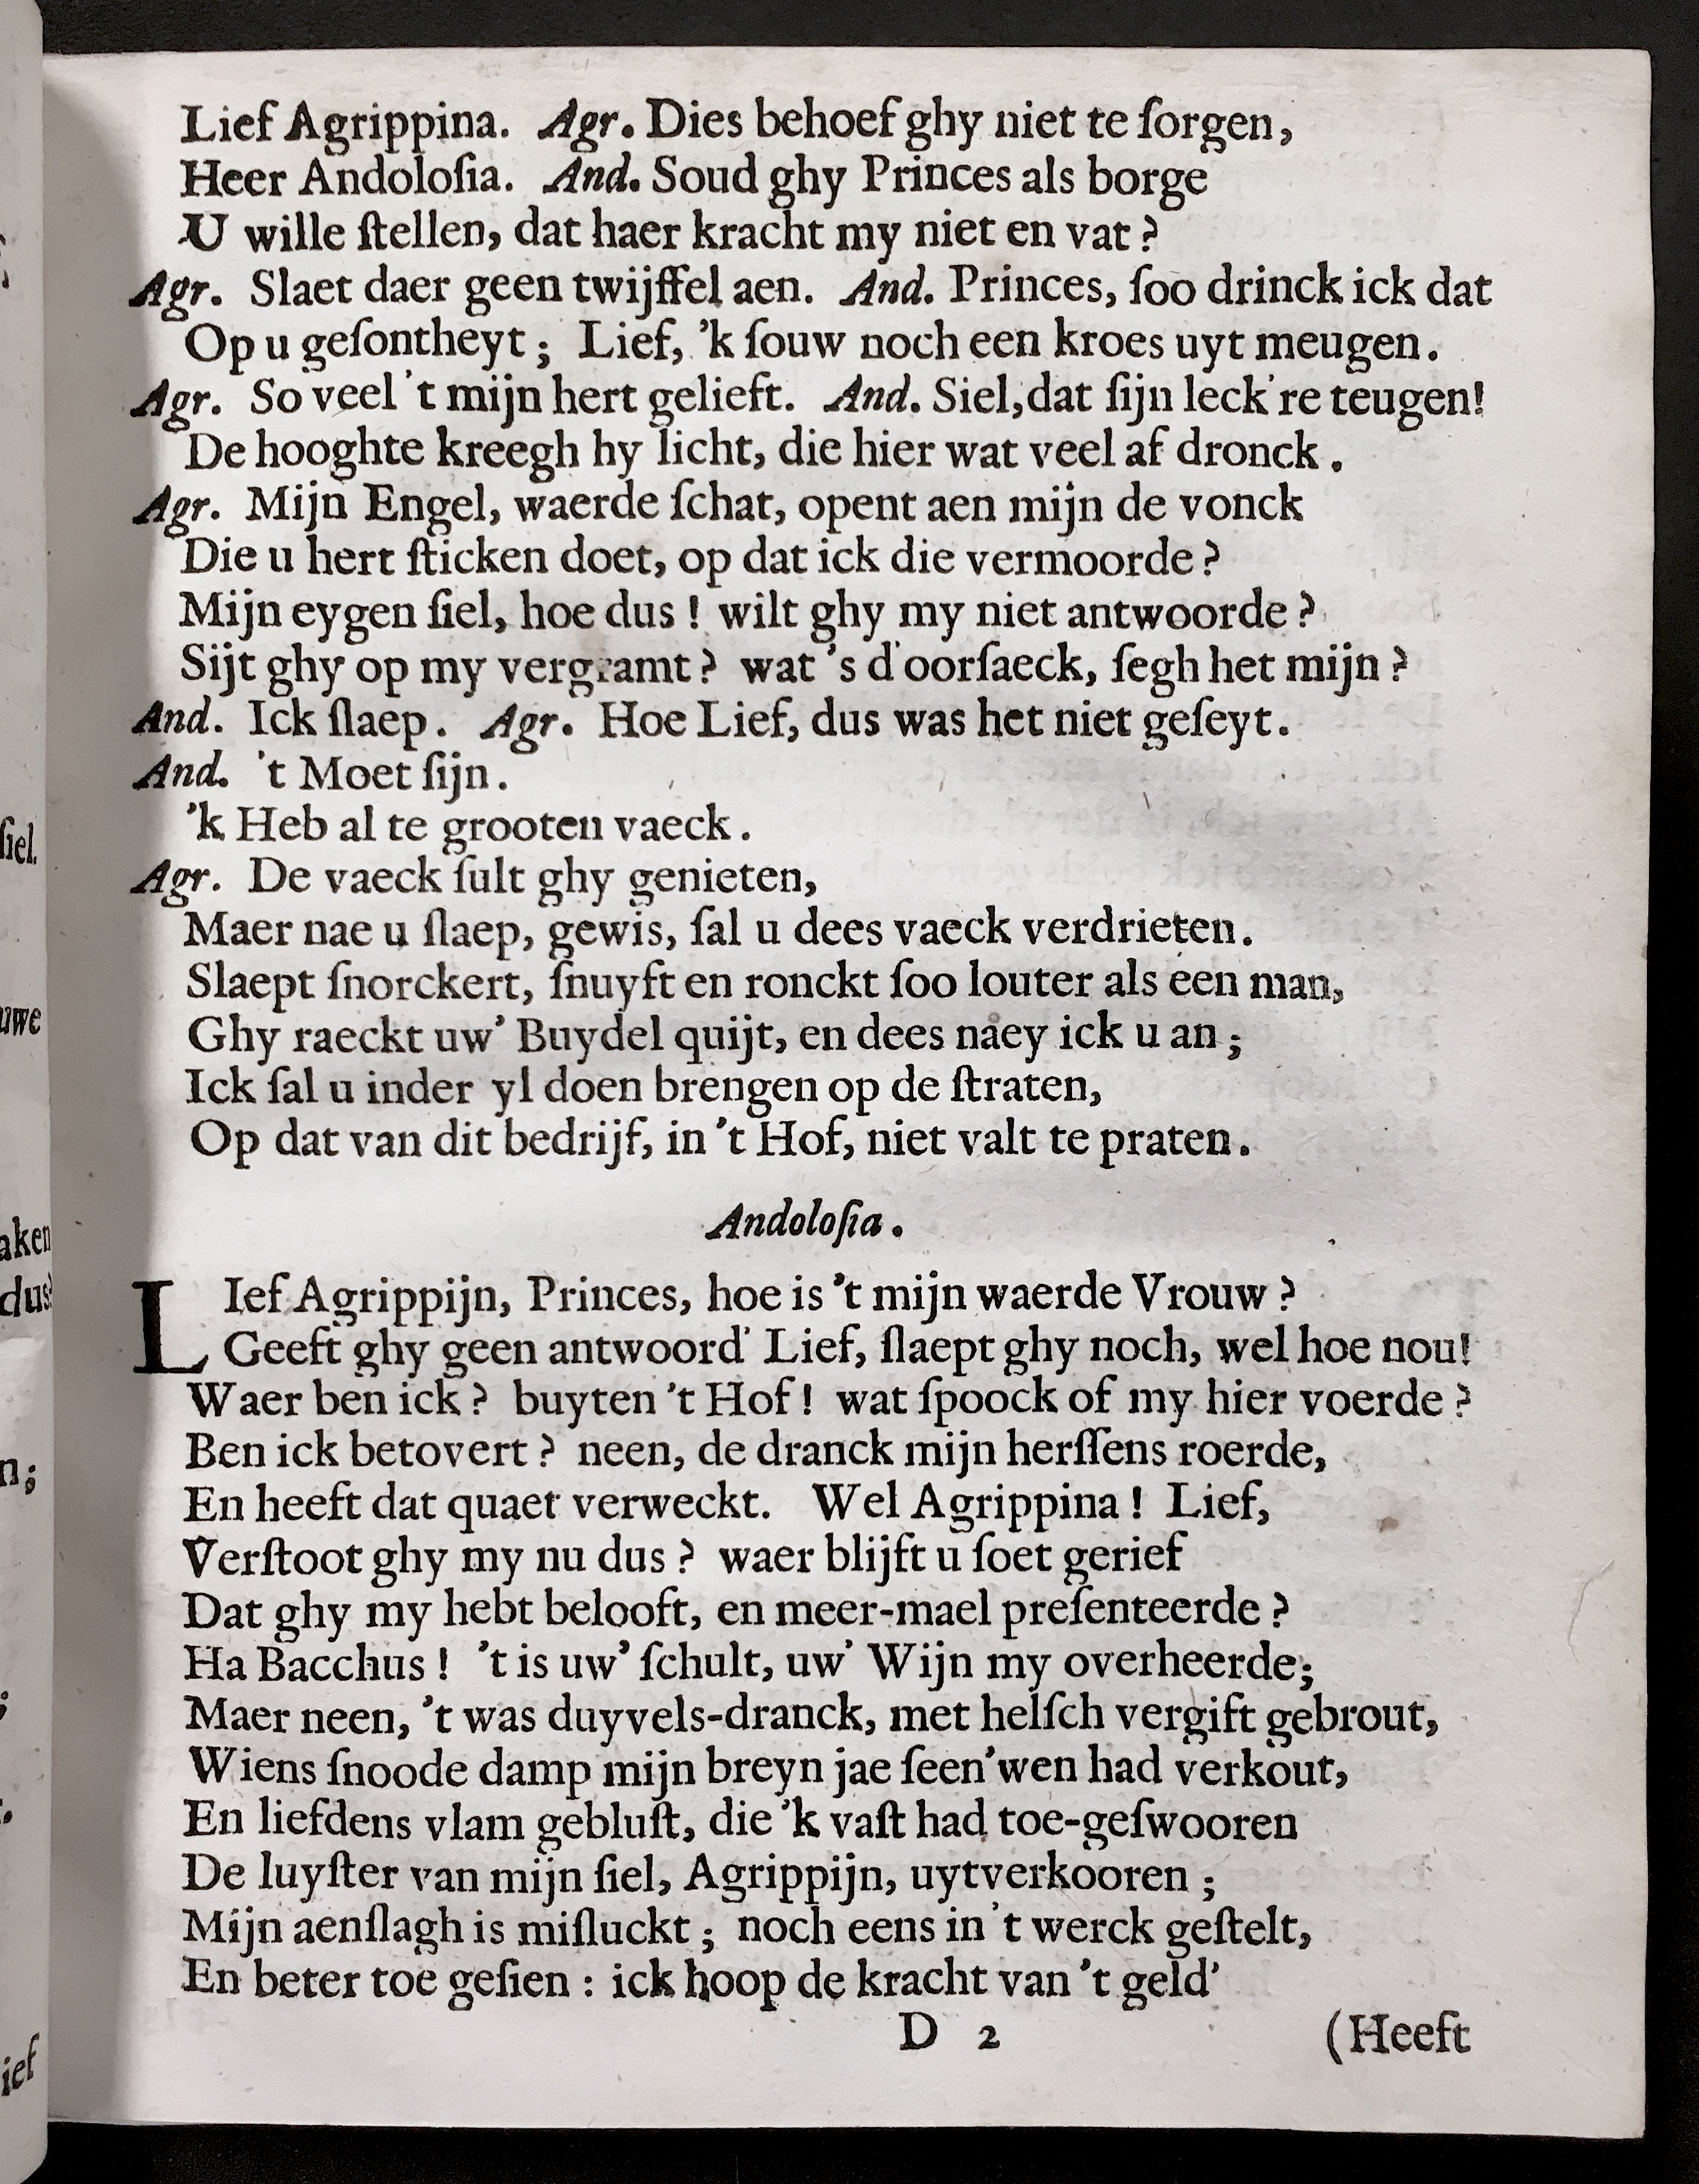 Lief Agrippina. Agr. Dies behoef ghy niet te ſorgen,
Heer Andoloſia. And. Soud ghy Princes als borge
U wille ſtellen, dat haer kracht my niet en vat?
Agr. Slaet daer geen twijffel aen. And. Princes, ſoo drinck ick dat
Op u geſontheyt; Lief, 'k ſouw noch een kroes uyt meugen.
Agr. So veel 't mijn hert gelieft. And. Siel, dat ſijn leck're teugen!
De hooghte kreegh hy licht, die hier wat veel af dronck.
Agr. Mijn Engel, waerde ſchat, opent aen mijn de vonck
Die u hert ſticken doet, op dat ick die vermoorde?
Mijn eygen ſiel, hoe dus! wilt ghy my niet antwoorde?
Sijt ghy op my vergramt? wat 's d'oorſaeck, ſegh het mijn?
And. Ick ſlaep. Agr. Hoe Lief, dus was het niet geſeyt.
And. 't Moet ſijn.
'k Heb al te grooten vaeck.
Agr. De vaeck ſult ghy genieten,
Maer nae u ſlaep, gewis, ſal u dees vaeck verdrieten.
Slaept ſnorckert, ſnuyft en ronckt ſoo louter als een man,
Ghy raeckt uw' Buydel quijt, en dees naey ick u an;
Ick ſal u inder yl doen brengen op de ſtraten,
Op dat van dit bedrijf, in 't Hof, niet valt te praten.
Andoloſia.
LIef Agrippijn, Princes, hoe is 't mijn waerde Vrouw?
Geeft ghy geen antwoord' Lief, ſlaept ghy noch, wel hoe nou!
Waer ben ick? buyten 't Hof! wat ſpoock of my hier voerde?
Ben ick betovert? neen, de dranck mijn herſſens roerde,
En heeft dat quaet verweckt. Wel Agrippina! Lief,
Verſtoot ghy my nu dus? waer blijft u ſoet gerief
Dat ghy my hebt belooft, en meer-mael preſenteerde?
Ha Bacchus! 't is uw' ſchult, uw' Wijn my overheerde;
Maer neen, 't was duyvels-dranck, met helſch vergift gebrout,
Wiens ſnoode damp mijn breyn jae ſeen'wen had verkout,
En liefdens vlam gebluſt, die 'k vaſt had toe-geſwooren
De luyſter van mijn ſiel, Agrippijn, uytverkooren;
Mijn aenſlagh is miſluckt; noch eens in 't werck geſtelt,
En beter toe geſien: ick hoop de kracht van 't geld'
D 2 (Heeft